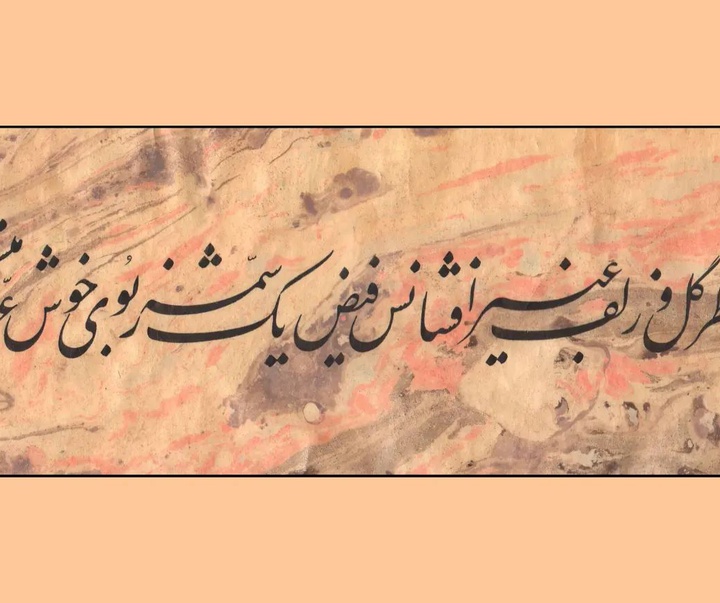 گل و زلف عبیر افشانش فیض یک شمّه ز بُوی خوش